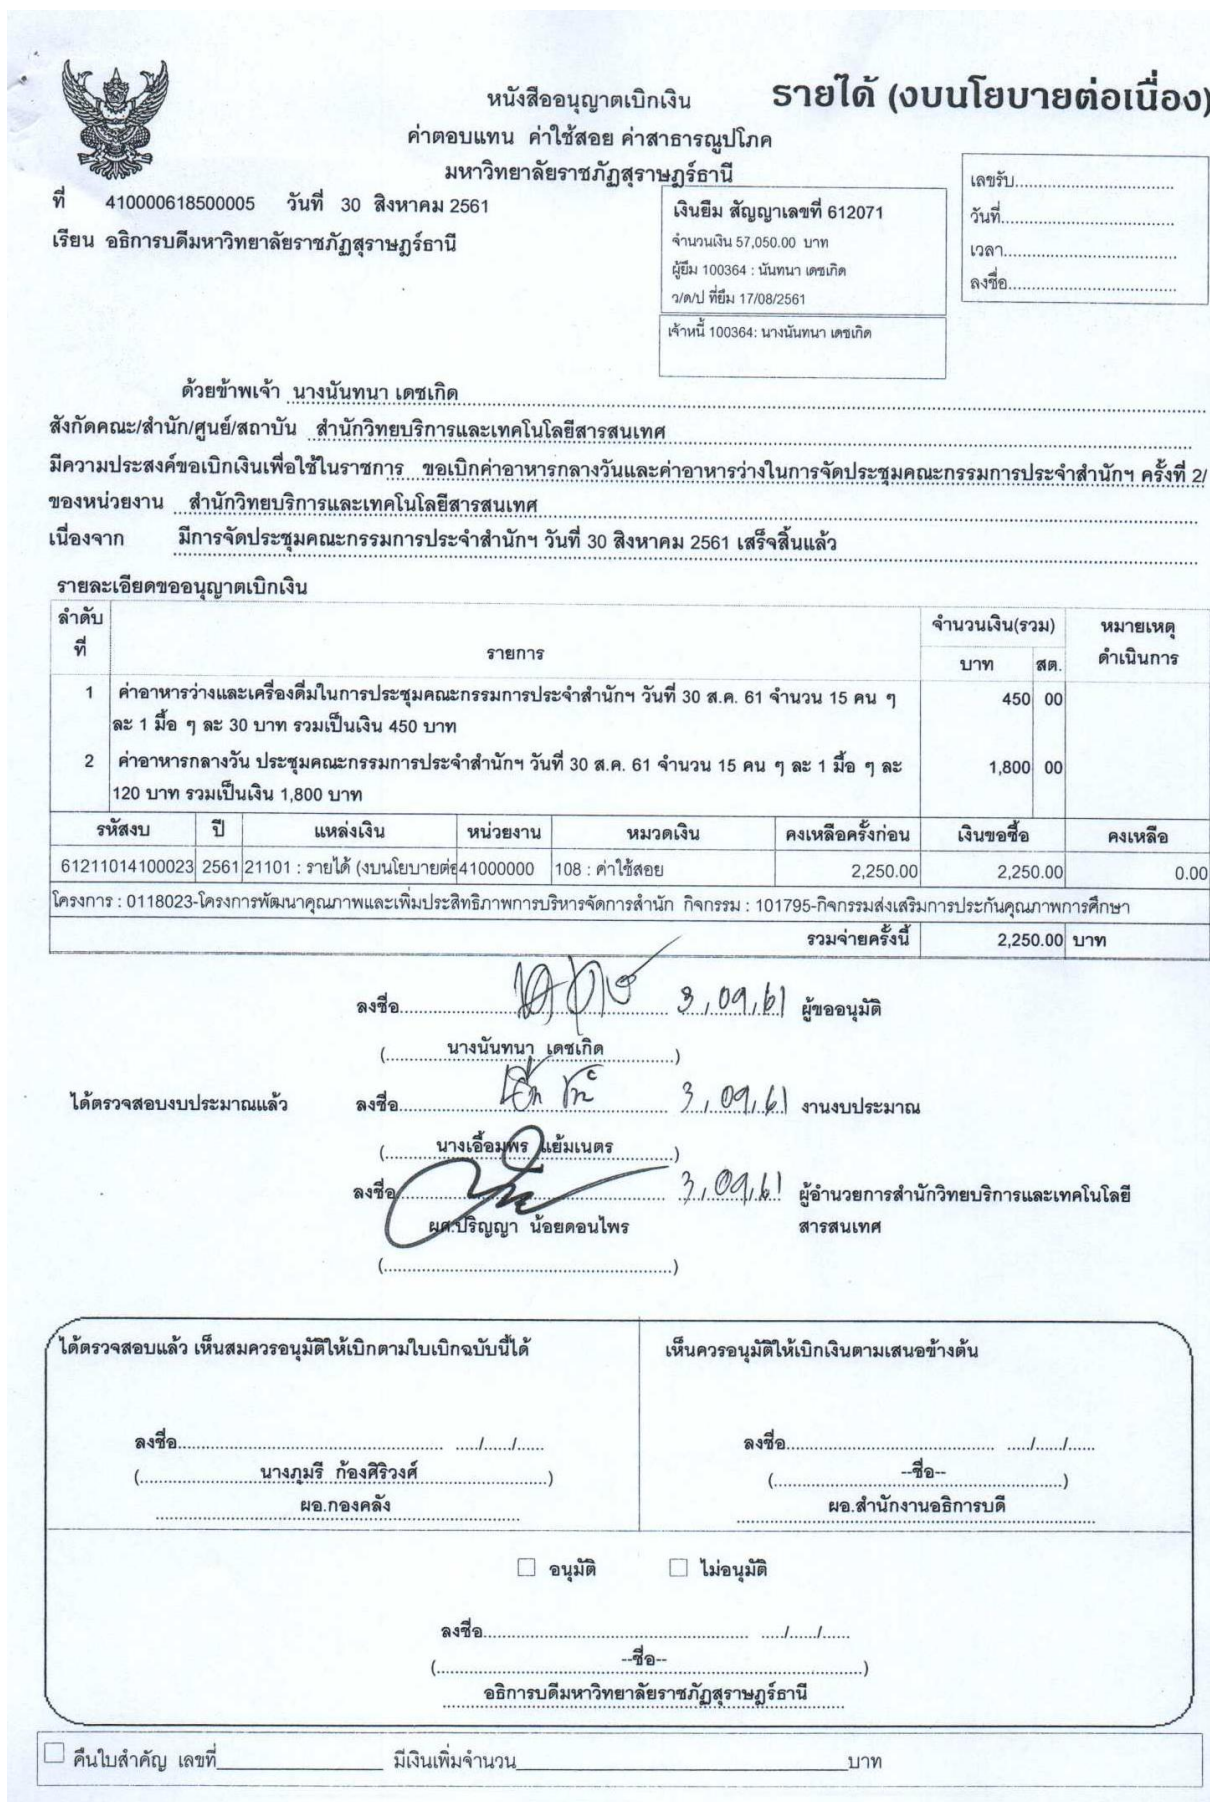 หนังสืออนุญาตเบิกเงิน รายได้ (งบนโยบายต่อเนื่อง)
ค่าตอบแทน ค่าใช้สอย ค่าสาธารณูปโภค
มหาวิทยาลัยราชภัฏสุราษฎร์ธานี
ที่ 410000618500005 วันที่ 30 สิงหาคม 2561
เรียน อธิการบดีมหาวิทยาลัยราชภัฏสุราษฎร์ธานี
เงินยืม สัญญาเลขที่ 612071
จำนวนเงิน 57,050.00 บาท
ผู้ยืม 100364 : นันทนา เดชเกิด
ว/ด/ป ที่ยืม 17/08/2561
เจ้าหนี้ 100364: นางนันทนา เดชเกิด
เลขรับ................................
วันที่................................
เวลา................................
ลงชื่อ................................
ด้วยข้าพเจ้า นางนันทนา เดชเกิด
สังกัดคณะ/สำนัก/ศูนย์/สถาบัน สำนักวิทยบริการและเทคโนโลยีสารสนเทศ
มีความประสงค์ขอเบิกเงินเพื่อใช้ในราชการ ขอเบิกค่าอาหารกลางวันและค่าอาหารว่างในการจัดประชุมคณะกรรมการประจำสำนักฯ ครั้งที่ 2/
ของหน่วยงาน สำนักวิทยบริการและเทคโนโลยีสารสนเทศ
เนื่องจาก มีการจัดประชุมคณะกรรมการประจำสำนักฯ วันที่ 30 สิงหาคม 2561 เสร็จสิ้นแล้ว
รายละเอียดขออนุญาตเบิกเงิน
ลำดับที่ รายการ จำนวนเงิน(รวม) หมายเหตุ
บาท สต. ดำเนินการ
1 ค่าอาหารว่างและเครื่องดื่มในการประชุมคณะกรรมการประจำสำนักฯ วันที่ 30 ส.ค. 61 จำนวน 15 คน ๆ 450 00
ละ 1 มื้อ ๆ ละ 30 บาท รวมเป็นเงิน 450 บาท
2 ค่าอาหารกลางวัน ประชุมคณะกรรมการประจำสำนักฯ วันที่ 30 ส.ค. 61 จำนวน 15 คน ๆ ละ 1 มื้อ ๆ ละ 1,800 00
120 บาท รวมเป็นเงิน 1,800 บาท
รหัสงบ ปี แหล่งเงิน หน่วยงาน หมวดเงิน คงเหลือครั้งก่อน เงินขอซื้อ คงเหลือ
61211014100023 2561 21101 : รายได้ (งบนโยบายต่อ 41000000 108 : ค่าใช้สอย 2,250.00 2,250.00 0.00
โครงการ : 0118023-โครงการพัฒนาคุณภาพและเพิ่มประสิทธิภาพการบริหารจัดการสำนัก กิจกรรม : 101795-กิจกรรมส่งเสริมการประกันคุณภาพการศึกษา
รวมจ่ายครั้งนี้ 2,250.00 บาท
ลงชื่อ................ 3/09/61 ผู้ขออนุมัติ
(นางนันทนา เดชเกิด)
ได้ตรวจสอบงบประมาณแล้ว ลงชื่อ................ 3/09/61 งานงบประมาณ
(นางเอื้อมพร แย้มเนตร)
ลงชื่อ................ 3/09/61 ผู้อำนวยการสำนักวิทยบริการและเทคโนโลยี
ผศ.ปริญญา น้อยดอนไพร สารสนเทศ
(................................)
ได้ตรวจสอบแล้ว เห็นสมควรอนุมัติให้เบิกตามใบเบิกฉบับนี้ได้
ลงชื่อ................ ...../....../......
(นางภูมรี ก้องศิริวงศ์)
ผอ.กองคลัง
เห็นควรอนุมัติให้เบิกเงินตามเสนอข้างต้น
ลงชื่อ................ ...../....../......
(--ชื่อ--)
ผอ.สำนักงานอธิการบดี
☐ อนุมัติ ☐ ไม่อนุมัติ
ลงชื่อ................ ...../....../......
(--ชื่อ--)
อธิการบดีมหาวิทยาลัยราชภัฏสุราษฎร์ธานี
☐ คืนใบสำคัญ เลขที่________________ มีเงินเพิ่มจำนวน________________บาท